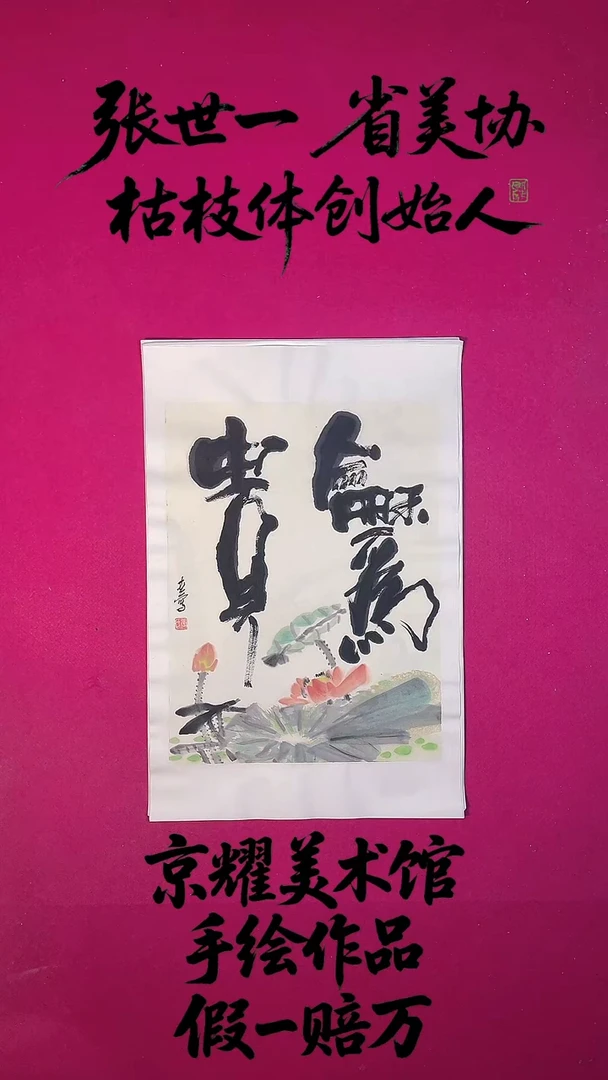 张世一 省美协
枯枝体创始人
龢為
貴
京耀美术馆
手绘作品
假一赔万